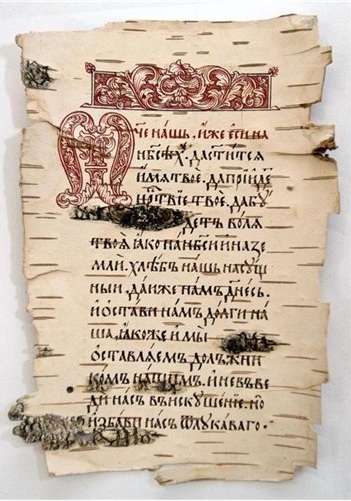 Ѿче нашъ, иже еси на
нбсѣхъ. Даститсѧ
имѧ твое. Даприиде
црствїе твое. Дабу
детъ волѧ
твоѧ ꙗко нанбси иназе
мли. Хлѣбъ нашъ насущ
ныи, даиже намъ днесь.
и остави намъ долги на
ша, ꙗкоже и мы
оставлѧемъ должни
комъ нашимъ. и невъве
ди насъ въискушенїе. но
избави насъ ѿлукаваго.